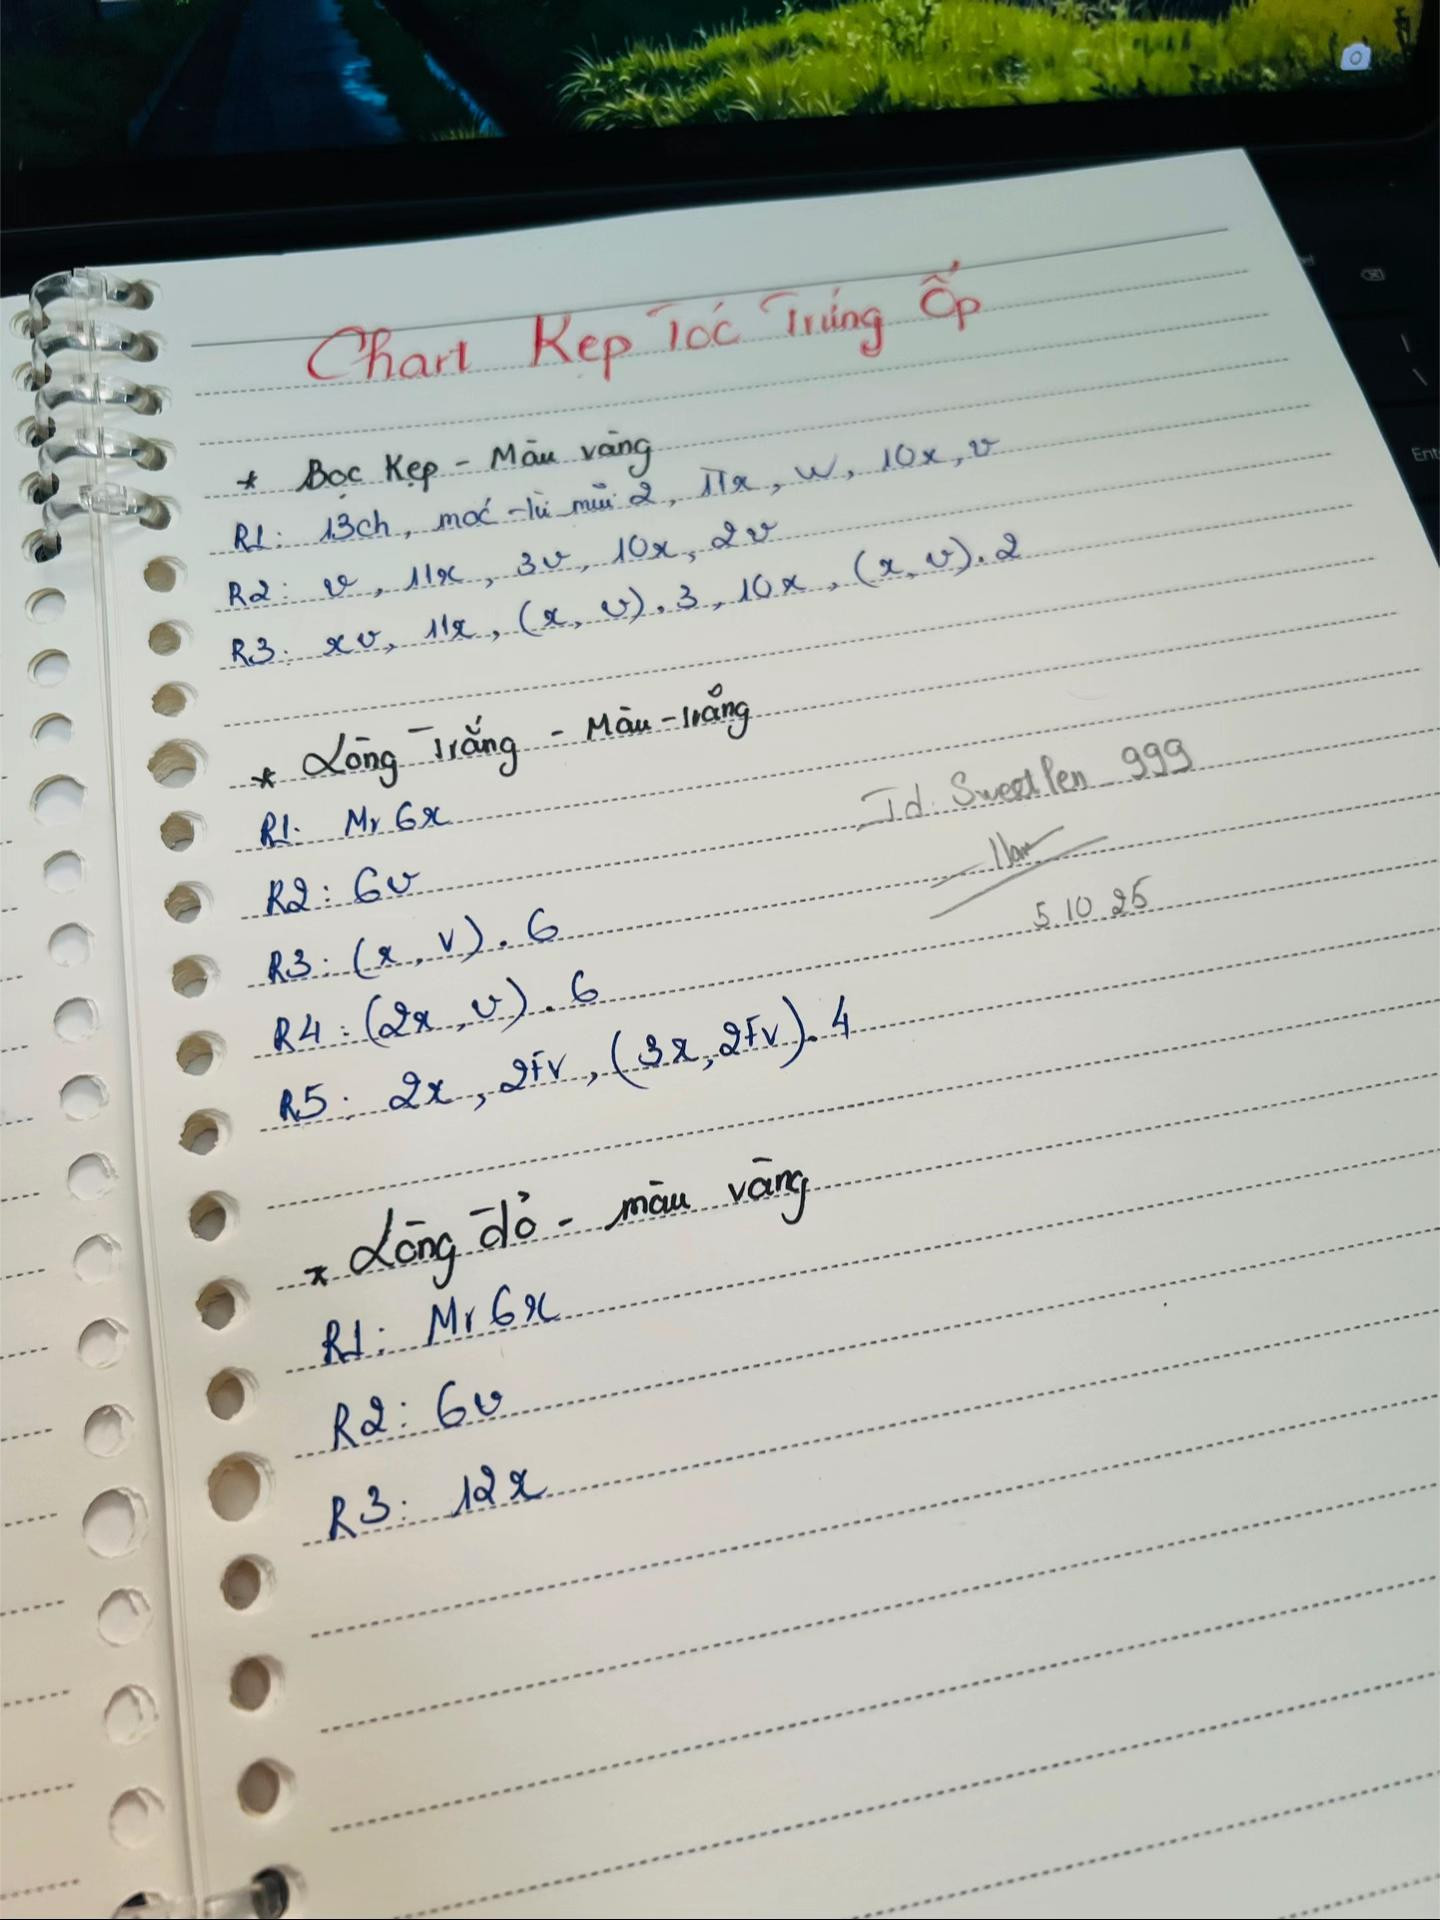 Chart Kẹp Tóc Trứng Ốp
* Bọc Kẹp - Màu vàng
R1: 13ch, móc từ mũi 2, 11x, w, 10x, v
R2: v, 11x, 3v, 10x, 2v
R3: xv, 11x, (x, v). 3, 10x, (x, v). 2
* Lòng Trắng - Màu trắng
R1: Mr 6x
Id: SweetPen_999
R2: 6v
5.10.25
R3: (x, v). 6
R4: (2x, v). 6
R5: 2x, 2Fv, (3x, 2Fv). 4
* Lòng đỏ - màu vàng
R1: Mr 6x
R2: 6v
R3: 12x
Ent